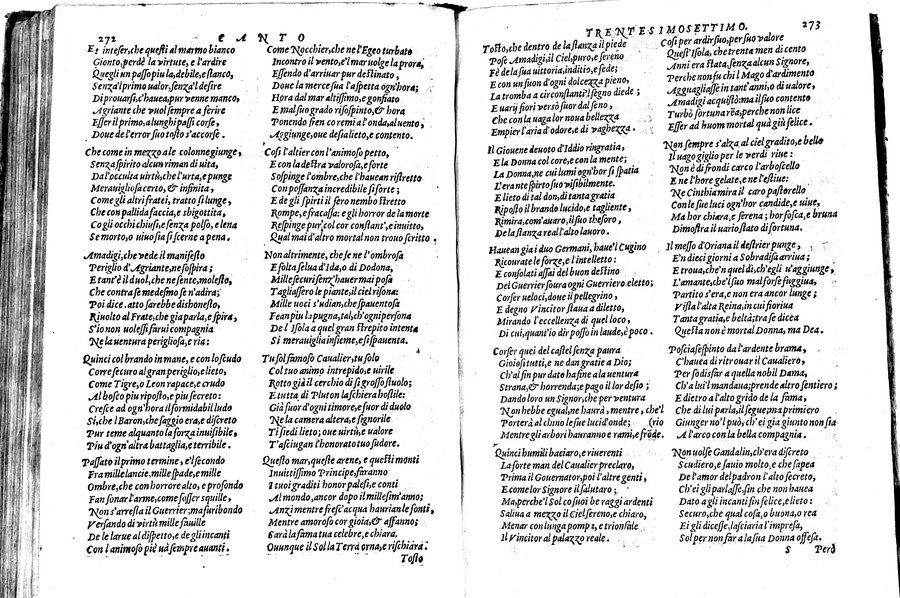 272 CANTO
Et inteser, che questi al marmo bianco
Gionto, perdè la virtute, e l'ardire
Quegli un passo più la, debile, e stanco,
Senza'l primo valor, senza'l desire
Di prouarsi, c'hauea pur venne manco,
Agriante che vuol sempre a ferire
Esser il primo, a lunghi passi corse,
Doue de l'error suo tosto s'accorse.
Che come in mezzo a le colonne giunge,
Senza spirito alcun riman di uita,
Da l'occulta virtù, che l'urta, e punge
Merauigliosa certo, & infinita,
Come gli altri fratei, tratto fu lunge,
Che con pallida faccia, e sbigottita,
Co gli occhi chiusi, e senza polso, e lena
Se morto, o uiuo sia si scerne a pena.
Amadigi, che vede il manifesto
Periglio d'Agriante, ne sospira;
E tant'è il duol, che ne sente, molesto,
Che contra se medesmo se n'adira;
Poi dice. atto sarebbe dishonesto,
Riuolto al Frate, che gia parla, e spira,
S'io non uolessi farui compagnia
Ne la uentura perigliosa, e ria:
Quinci col brando in mane, e con lo scudo
Corre securo al gran periglio, e lieto,
Come Tigre, o Leon rapace, e crudo
Al bosco piu riposto, e piu secreto:
Cresce ad ogn'hora il formidabil ludo
Si, che'l Baron, che saggio era, e discreto
Pur teme alquanto la forza inuisibile,
Piu d'ogn'altra battaglia, e terribile.
Passato il primo termine, e'l secondo
Fra mille lancie, mille spade, e mille
Ombre, che con horrore alto, e profondo
Fan sonar l'arme, come fosser squille,
Non s'arresta il Guerrier; ma furibondo
Versando di virtù mille fauille
De le larue al dispetto, e de gli incanti
Con l'animoso piè uà sempre auanti.
Come Nocchier, che ne l'Egeo turbato
Incontro il vento, e'l mar uolge la prora,
Essendo d'arriuar pur destinato,
Doue la merce sua l'aspetta ogn'hora;
Hora dal mar altissimo, e gonfiato
E mal suo grado risospinto, & hora
Ponendo fren co remi a l'onda, al uento,
Aggiunge, oue desia lieto, e contento.
Cosi l'altier con l'animoso petto,
E con la destra valorosa, e forte
Sospinge l'ombre, che l'hauean ristretto
Con possanza incredibile si forte;
E de gli spirti il fero nembo stretto
Rompe, e fracassa: e gli horror de la morte
Respinge pur col cor constant', e inuitto,
Qual mai d'altro mortal non trouo scritto.
Non altrimente, che se ne l'ombrosa
E folta selua d'Ida, o di Dodona,
Mille securi senz'hauer mai posa
Tagliassero le piante, il ciel risona:
Mille uoci s'udian, che spauentosa
Fean piu la pugna, tal, ch'ogni persona
De l'Isola a quel gran strepito intenta
Si merauiglia insieme, e si spauenta.
Tu sol famoso Caualier, tu solo
Col tuo animo intrepido, e uirile
Rotto già il cerchio di si grosso stuolo;
E tutta di Pluton la schiera hostile:
Già fuor d'ogni timore, e fuor di duolo
Ne la camera altera, e signorile
Ti siedi lieto; oue uirtù, e valore
T'asciugan l'honorato tuo sudore.
Questo mar, queste arene, e questi monti
Inuittissimo Principe, faranno
I tuoi graditi honor palesi, e conti
Al mondo, ancor dopo il millesim'anno;
Anzi mentre fresc'acqua hauran le fonti,
Mentre amoroso cor gioia, & affanno;
Sarà la fama tua celebre, e chiara.
Ouunque il Sol la Terra orna, e rischiara.
Tosto
TRENTESIMOSETTIMO. 273
Tosto, che dentro de la stanza il piede
Pose Amadigi, il Ciel, puro, e sereno
Fè de la sua uittoria, inditio, e fede;
E con un suon d'ogni dolcezza pieno,
La tromba a circonstanti'l segno diede;
E uarij fiori versò fuor dal seno,
Che con la uaga lor noua bellezza
Empier l'aria d'odore, e di vaghezza.
Il Giouene deuoto d'Iddio ringratia,
E la Donna col core, e con la mente;
La Donna, ne cui lumi ogn'hor si spatia
L'errante spirto suo visibilmente.
E lieto di tal don, di tanta gratia
Riposto il brando lucido, e tagliente,
Rimira, com'auaro, il suo thesoro,
De la stanza real l'alto lauoro.
Hauean gia i duo Germani, haue'l Cugino
Ricourate le forze, e l'intelletto:
E consolati assai del buon destino
Del Guerrier soura ogni Guerriero eletto;
Corser ueloci, doue il pellegrino,
E degno Vincitor staua a diletto,
Mirando l'eccellenza di quel loco,
Di cui, quant'io dir posso in laude, è poco.
Corser quei del castel senza paura
Gioiosi tutti, e ne dan gratie a Dio;
Ch'al fin pur dato ha fine a la uentura
Strana, & horrenda; e pago il lor desio;
Dando loro un Signor, che per uentura
Non hebbe egual, ne haurà, mentre, che'l (rio
Porterà al chino le sue lucid'onde;
Mentre gli arbori hauranno e rami, e frode.
Quinci humili baciaro, e riuerenti
La forte man del Caualier preclaro,
Prima il Gouernator, poi l'altre genti,
E come lor Signore il salutaro;
Ma, perche'l Sol co suoi be raggi ardenti
Saliua a mezzo il Ciel sereno, e chiaro,
Menar con lunga pompa, e trionfale
Il Vincitor al palazzo reale.
Cosi per ardir suo, per suo valore
Quest'Isola, che trenta men di cento
Anni era stata, senza alcun Signore,
Perche non fu chi'l Mago d'ardimento
Agguagliasse in tant'anni, o di ualore,
Amadigi acquistò: ma il suo contento
Turbò fortuna rea, perche non lice
Esser ad huom mortal quà giù felice.
Non sempre s'alza al ciel gradito, e bello
Il uago giglio per le verdi riue:
Non è di frondi carco l'arboscello
E ne l'hore gelate, e ne l'estiue:
Ne Cinthia mira il caro pastorello
Con le sue luci ogn'hor candide, e uiue,
Ma hor chiara, e serena; hor fosca, e bruna
Dimostra il uario stato di fortuna.
Il messo d'Oriana il destrier punge,
E'n dieci giorni a Sobradisa arriua;
E troua, che'n quel dì, ch'egli u'aggiunge,
L'amante, che'l suo mal forse fuggiua,
Partito s'era, e non era ancor lunge;
Vista l'alta Reina, in cui fioriua
Tanta gratia, e beltà; tra se dicea
Questa non è mortal Donna, ma Dea.
Poscia sospinto da l'ardente brama,
C'hauea di ritrouar il Caualiero,
Per sodisfar a quella nobil Dama,
Ch'a lui'l mandaua; prende altro sentiero;
E dietro a l'alto grido de la fama,
Che di lui parla, il segue; ma primiero
Giunger no'l può, ch'ei gia giunto non sia
A l'arco con la bella compagnia.
Non uolse Gandalin, ch'era discreto
Scudiero, e sauio molto, e che sapea
De l'amor del padron l'alto secreto,
Ch'ei gli parlasse, fin che non hauea
Dato a gli incanti fin felice, e lieto:
Securo, che qual cosa, o buona, o rea
Ei gli dicesse, lasciaria l'impresa,
Sol per non far a la sua Donna offesa.
S Però